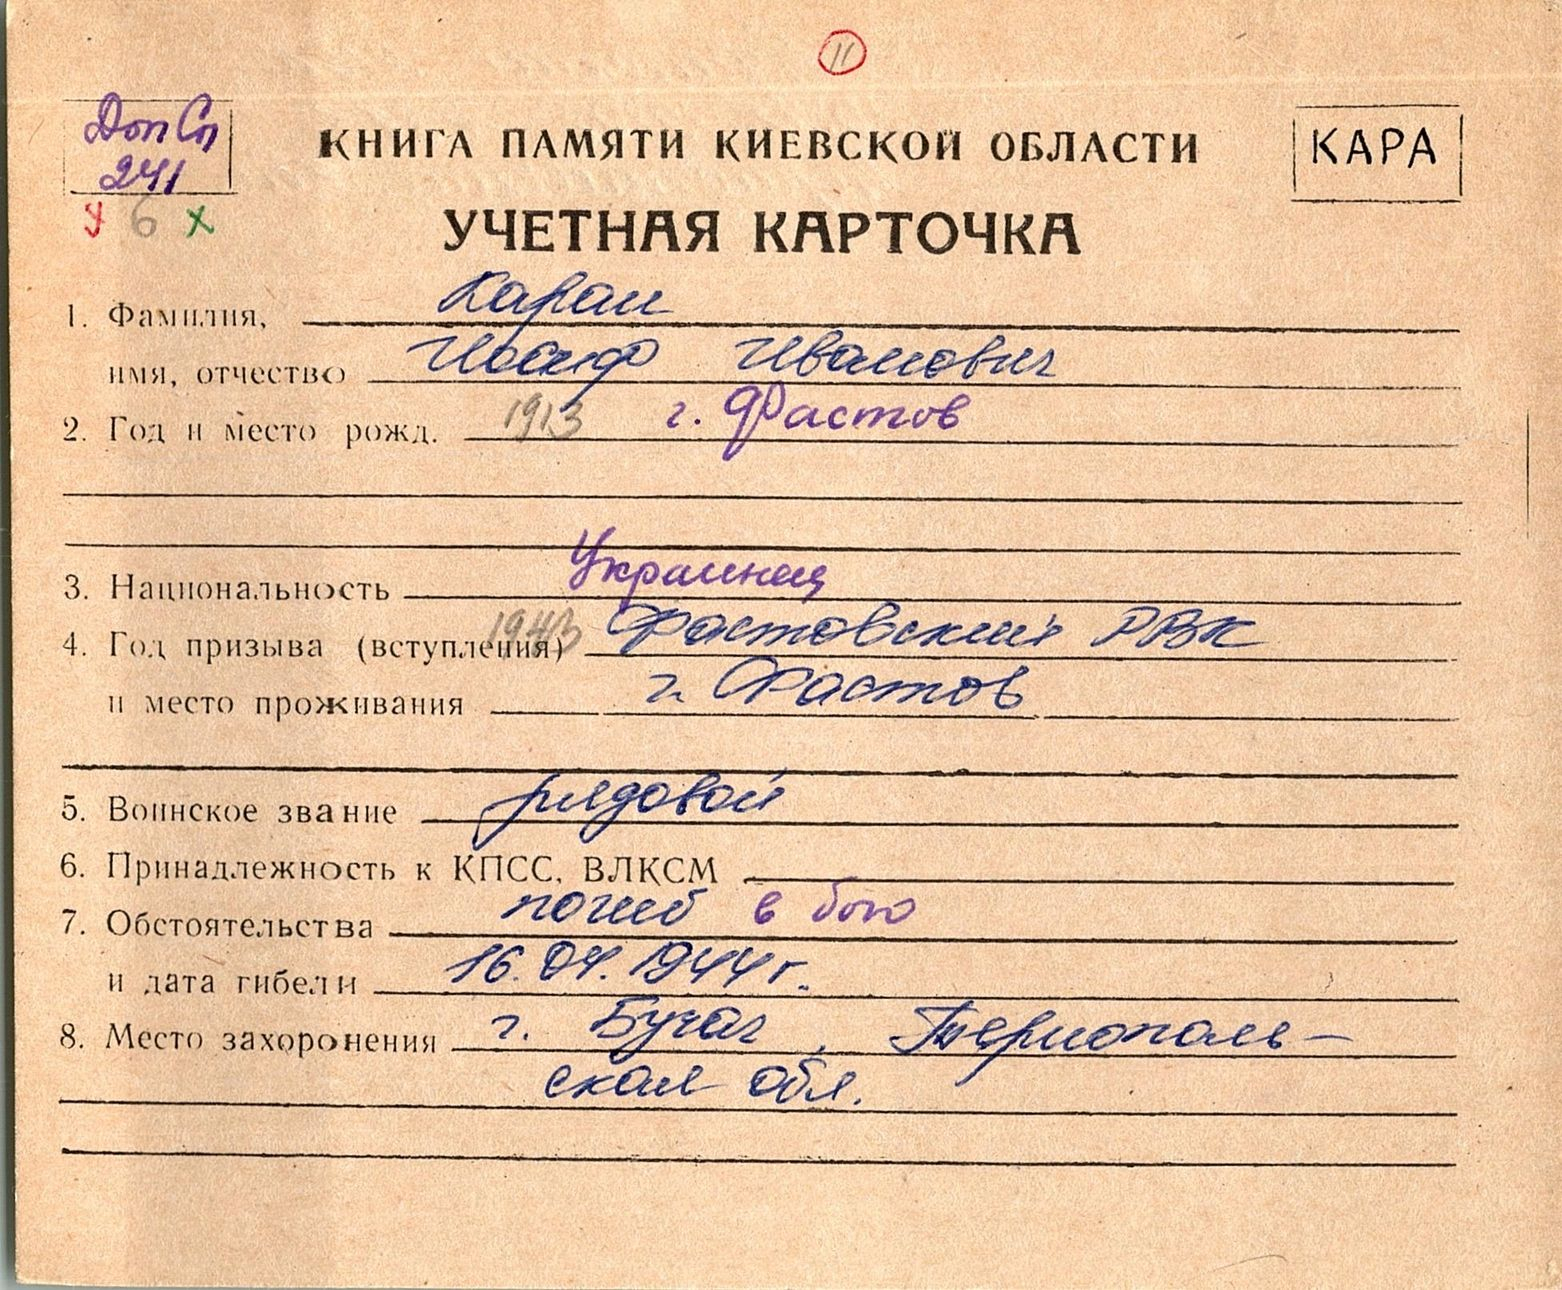 11
Доп Сп
241
У 6 Х
КНИГА ПАМЯТИ КИЕВСКОЙ ОБЛАСТИ
КАРА
УЧЕТНАЯ КАРТОЧКА
1. Фамилия, Каран
имя, отчество Иосиф Иванович
2. Год и место рожд. 1913 г. Фастов
3. Национальность Украинец
4. Год призыва (вступления) 1943 Фастовский РВК
и место проживания г. Фастов
5. Воинское звание рядовой
6. Принадлежность к КПСС, ВЛКСМ
7. Обстоятельства погиб в бою
и дата гибели 16.04.1944 г.
8. Место захоронения г. Бучач, Тернополь-
ская обл.